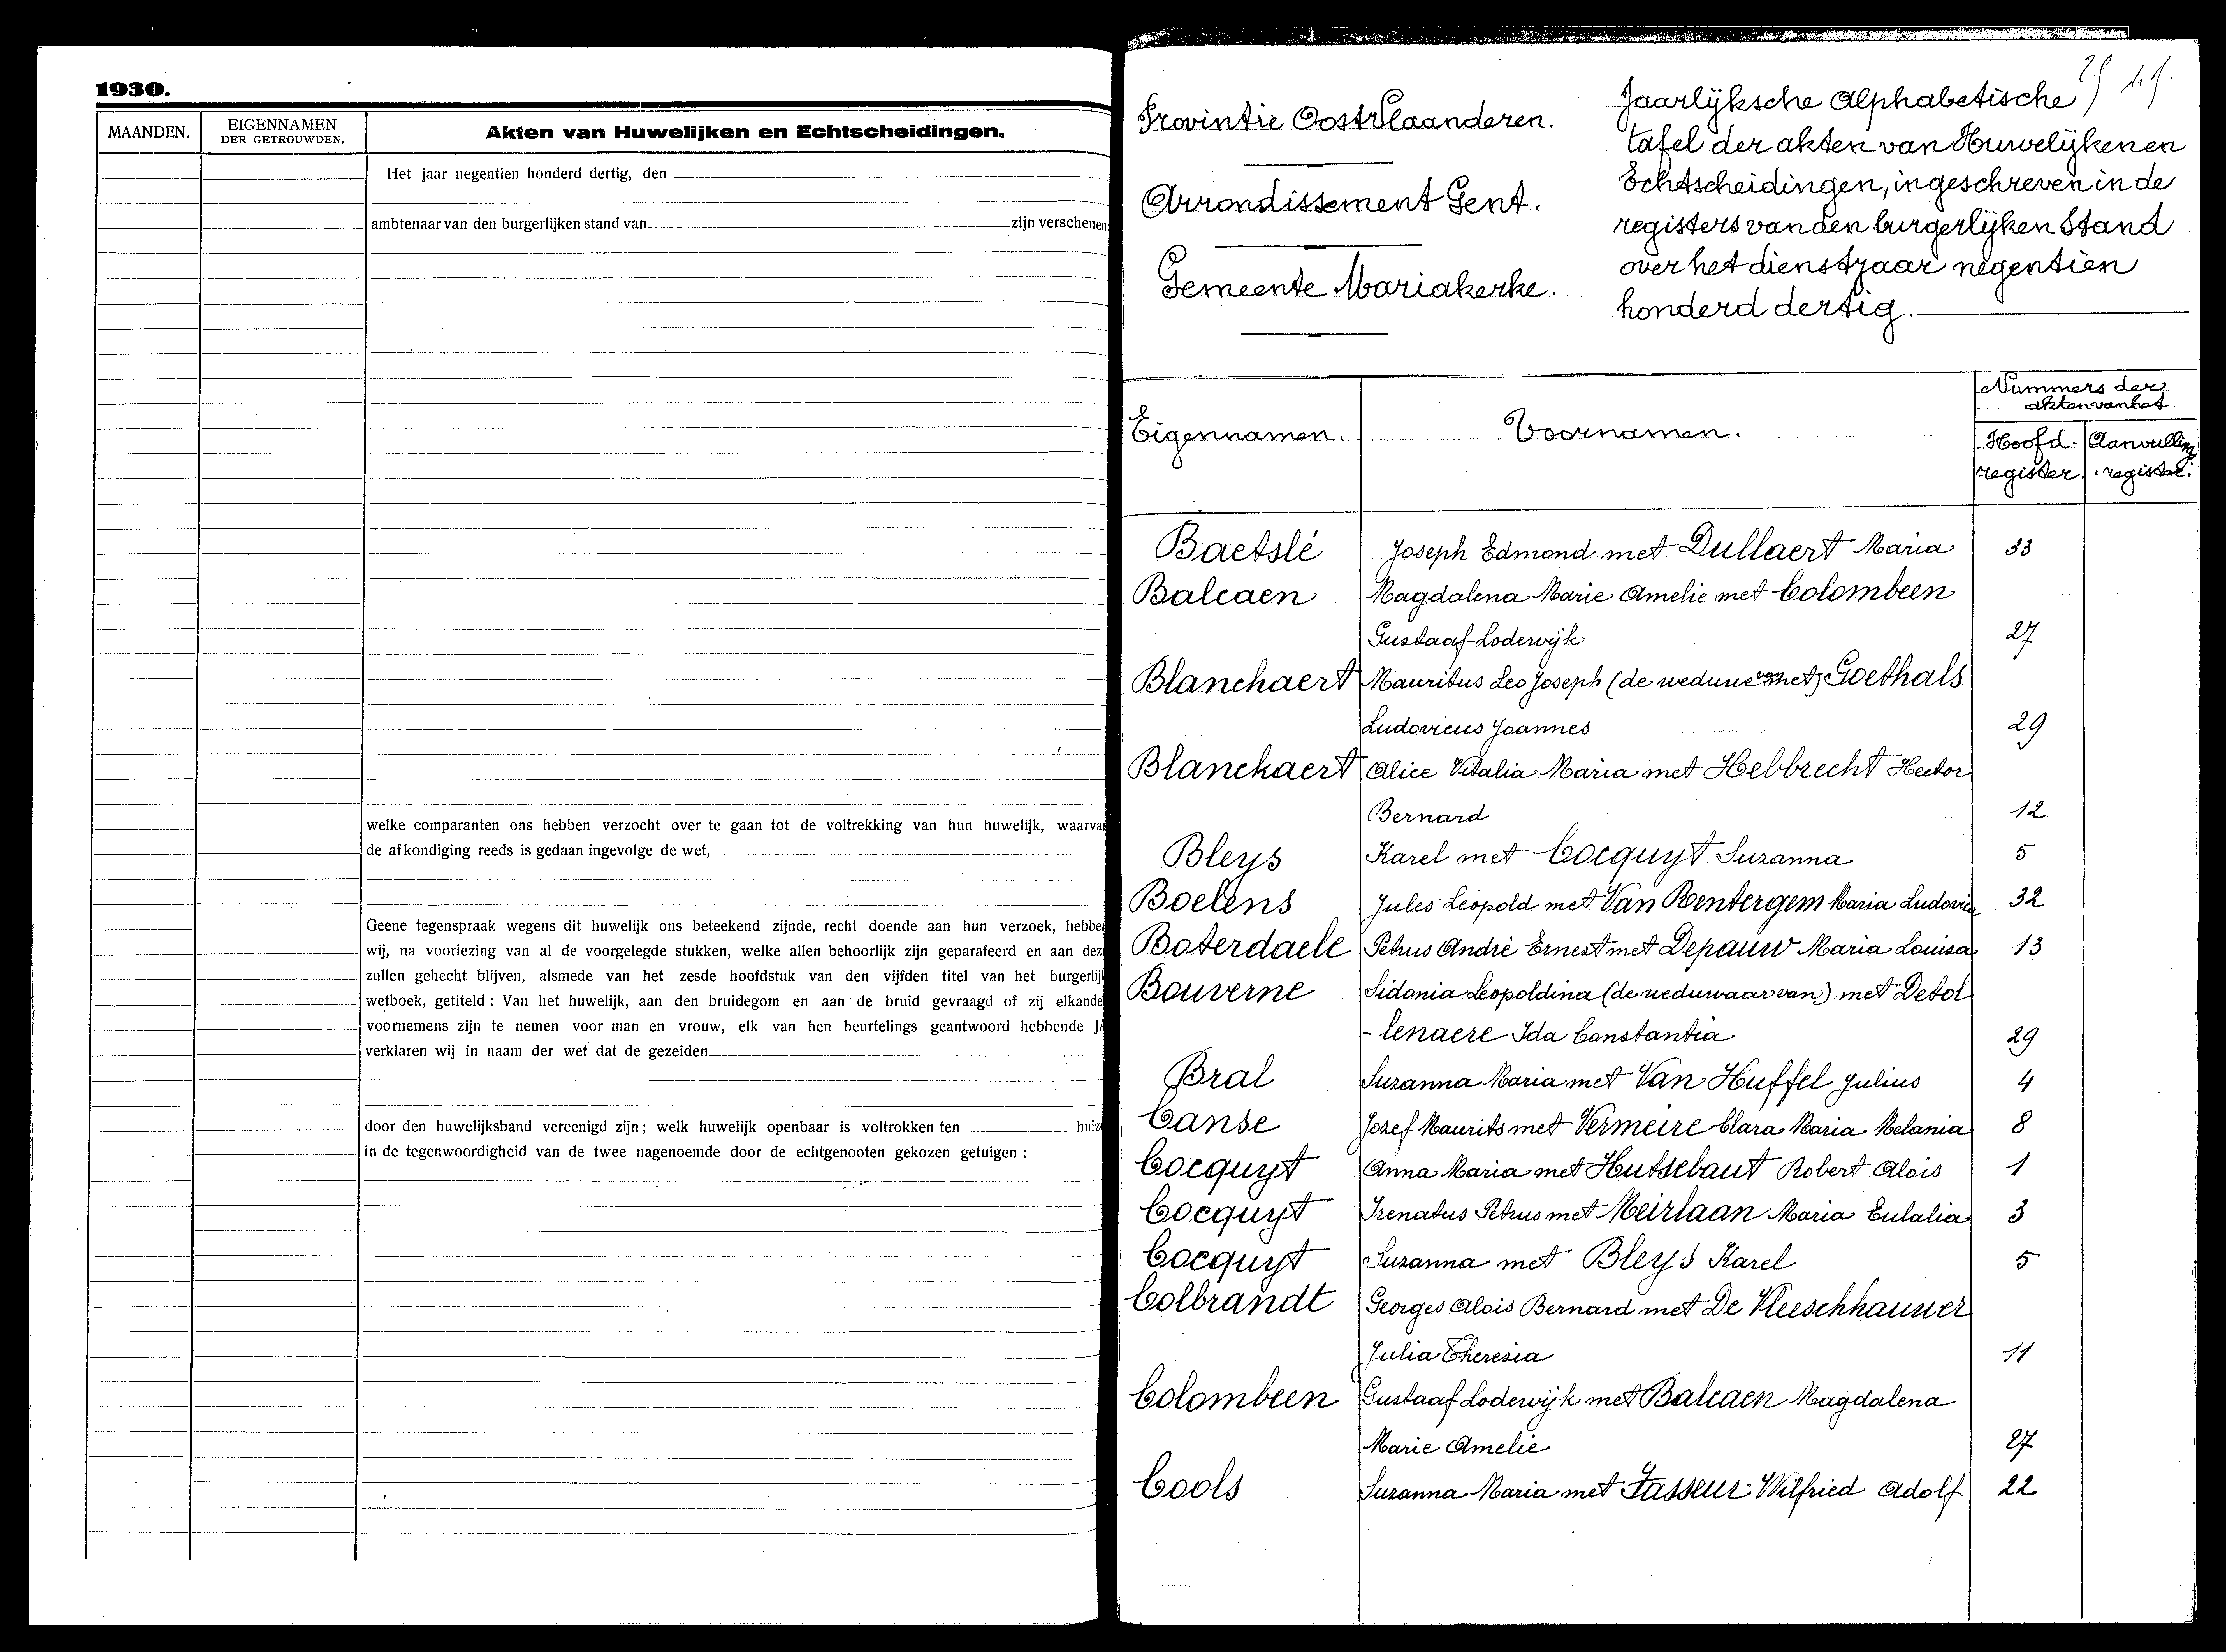 1930.
MAANDEN.
EIGENNAMEN
DER GETROUWDEN,
Akten van Huwelijken en Echtscheidingen.
Het jaar negentien honderd dertig, den
ambtenaar van den burgerlijken stand van zijn verschenen
welke comparanten ons hebben verzocht over te gaan tot de voltrekking van hun huwelijk, waarva
de afkondiging reeds is gedaan ingevolge de wet,
Geene tegenspraak wegens dit huwelijk ons beteekend zijnde, recht doende aan hun verzoek, hebben
wij, na voorlezing van al de voorgelegde stukken, welke allen behoorlijk zijn geparafeerd en aan dez
zullen gehecht blijven, alsmede van het zesde hoofdstuk van den vijfden titel van het burgerlij
wetboek, getiteld : Van het huwelijk, aan den bruidegom en aan de bruid gevraagd of zij elkande
voornemens zijn te nemen voor man en vrouw, elk van hen beurtelings geantwoord hebbende JA
verklaren wij in naam der wet dat de gezeiden
door den huwelijksband vereenigd zijn; welk huwelijk openbaar is voltrokken ten huiz
in de tegenwoordigheid van de twee nagenoemde door de echtgenooten gekozen getuigen :
Provintie OostVlaanderen.
Arrondissement Gent.
Gemeente Mariakerke.
Jaarlijksche Alphabetische
tafel der akten van Huwelijken en
Echtscheidingen, ingeschreven in de
registers van den burgerlijken Stand
over het dienstjaar negentien
honderd dertig.
Eigennamen.
Voornamen.
Nummers der
akten van het
Hoofd-
register
Aanvulling
register.
Baetslé Joseph Edmond met Dullaert Maria 33
Balcaen Magdalena Marie Amelie met Colombeen
Gustaaf Lodewijk 27
Blanchaert Mauritus Leo Joseph (de weduwe van met) Goethals
Ludovicus Joannes 29
Blanckaert Alice Vitalia Maria met Hebbrecht Hector
Bernard 12
Bleys Karel met Cocquyt Suzanna 5
Boelens Jules Leopold met Van Rentergem Maria Ludovica 32
Boterdaele Petrus André Ernest met Depauw Maria Louisa 13
Bouverne Sidonia Leopoldina (de weduwaar van) met Detol
- lenaere Ida Constantia 29
Bral Suzanna Maria met Van Huffel Julius 4
Canse Jozef Maurits met Vermeire Clara Maria Melania 8
Cocquyt Anna Maria met Hutsebaut Robert Alois 1
Cocquyt Irenatus Petrus met Meirlaan Maria Eulalia 3
Cocquyt Suzanna met Bleys Karel 5
Colbrandt Georges Alois Bernard met De Vleeschhauwer
Julia Theresia 11
Colombeen Gustaaf Lodewijk met Balcaen Magdalena
Marie Amelie 27
Cools Suzanna Maria met Fasseur Wilfried Adolf 22